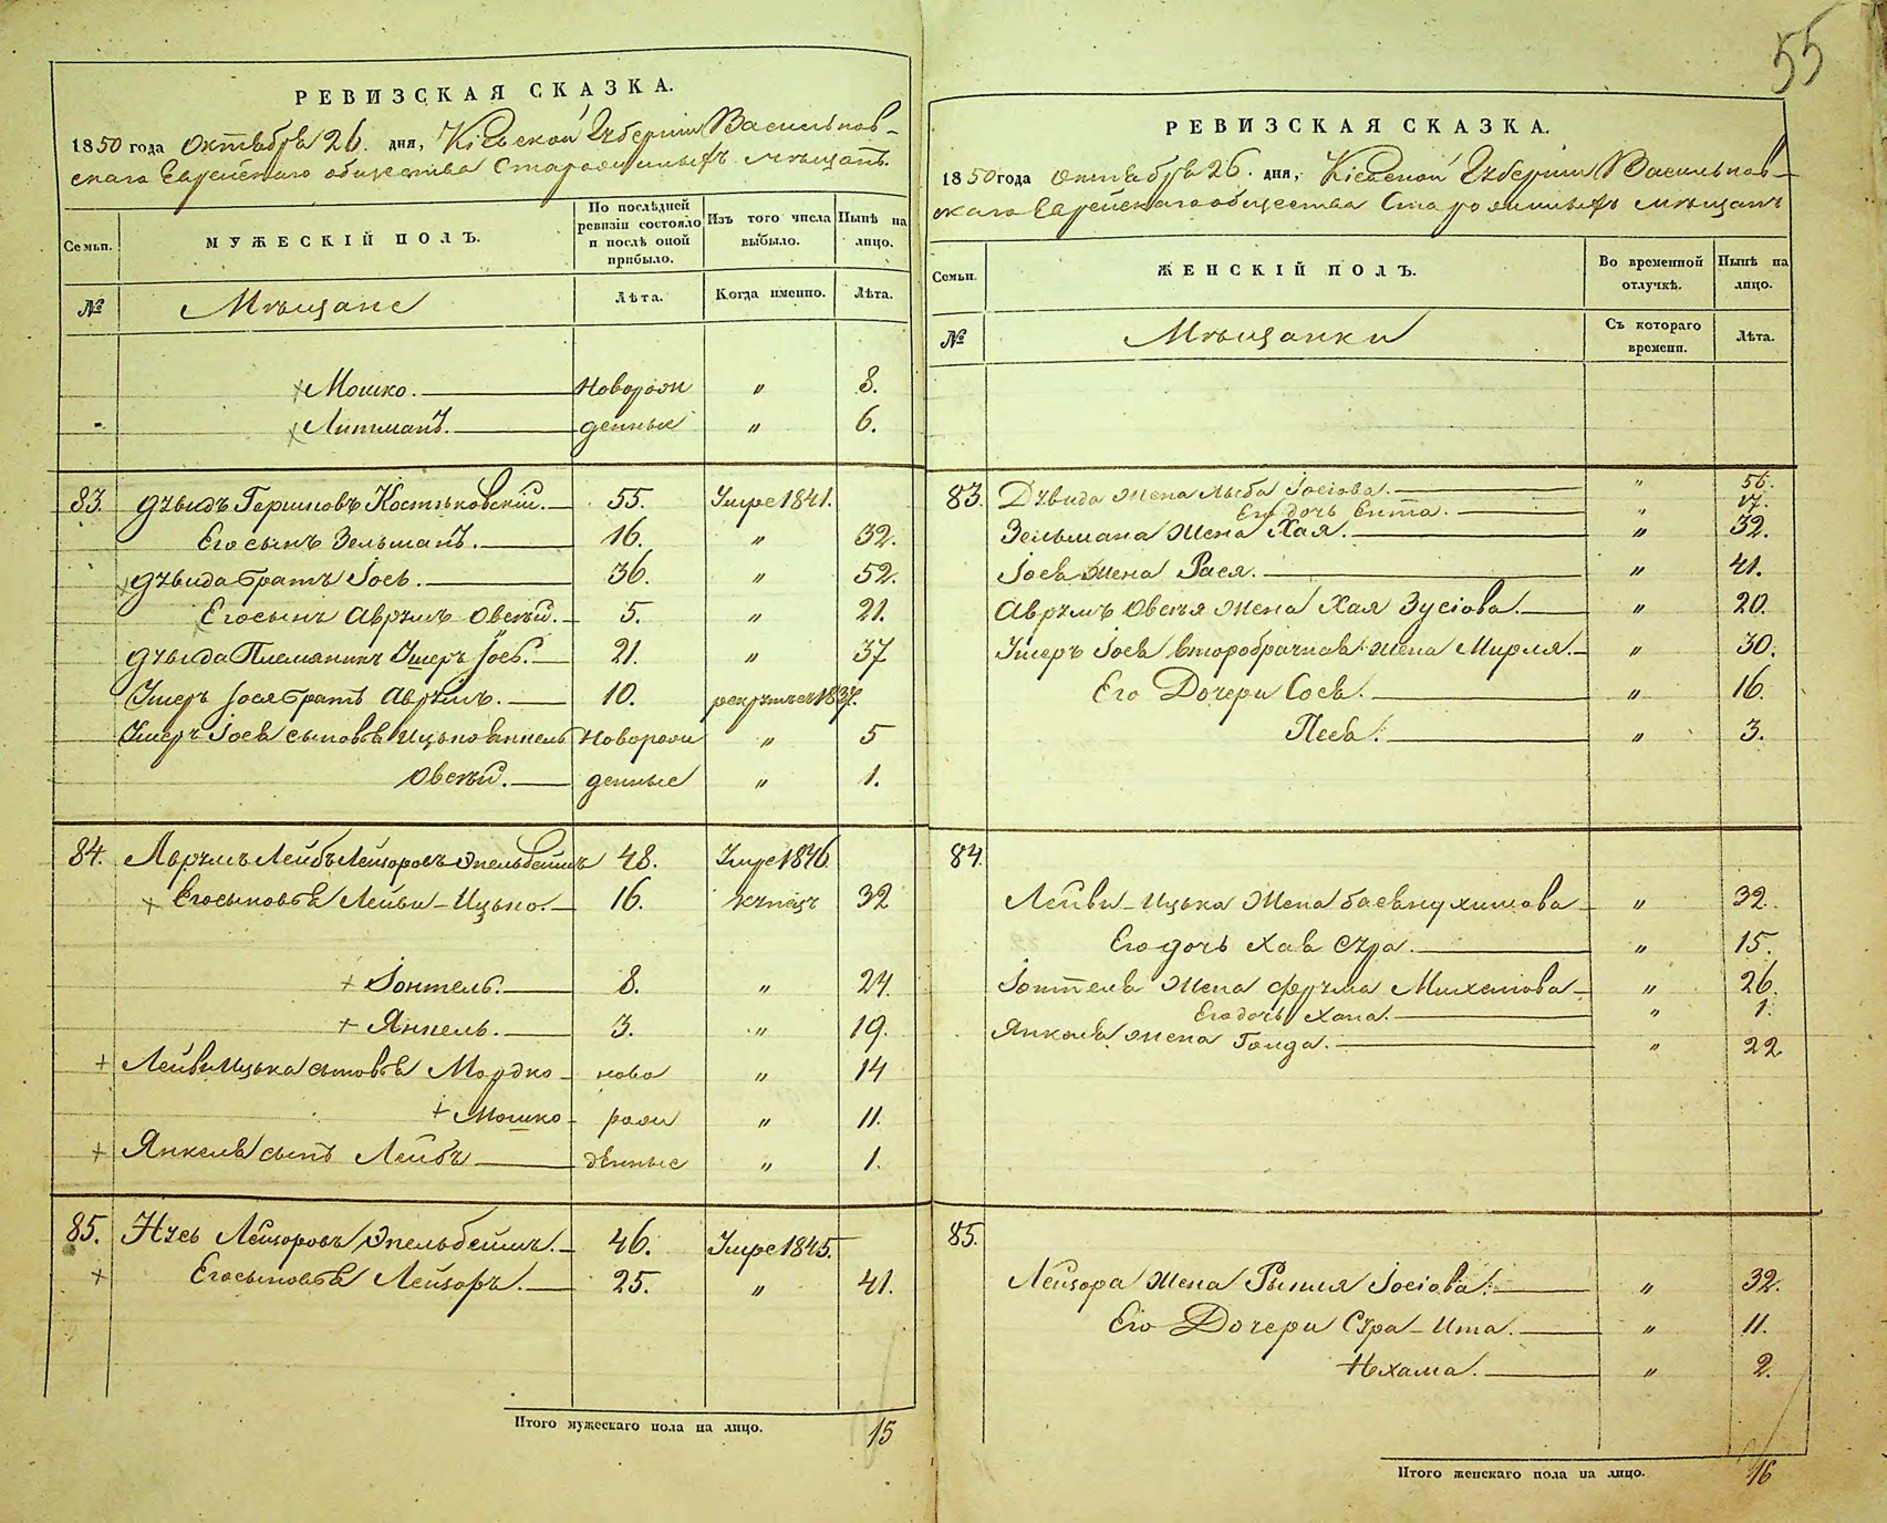 55
РЕВИЗСКАЯ СКАЗКА.
1850 года Октября 26. дня, Кіевской Губерніи Васильков-
скаго Еврейскаго общества Старожилыхъ мѣщанъ.
Семьи.
МУЖЕСКІЙ ПОЛЪ.
По послѣдней ревизіи состояло и послѣ оной прибыло.
Изъ того числа выбыло.
Нынѣ на лицо.
№
Мѣщане
Лѣта.
Когда именно.
Лѣта.
Мошко. Новорож „ 8.
Литманъ. денные „ 6.
83. Дувидъ Гершковъ Костьковскій. 55. Умре 1841.
Его сынъ Зельманъ. 16. „ 32.
Дувида братъ Іось. 36. „ 52.
Его сынъ Аврумъ Овсѣй. 5. „ 21.
Дувида Племяникъ Ушеръ Іось. 21. „ 37
Ушеръ Іося братъ Аврумъ. 10. рекрутъ съ 1837.
Ушеръ Іося сыновья Ицько Янкель Новорож „ 5
Овсѣй. денные „ 1.
84. Аврумъ Лейбъ Лейзоровъ Эпельбеймъ 48. Умре 1846
Его сыновья Лейви-Ицько. 16. 32
Іонтель. 8. „ 24.
Янкель. 3. „ 19.
Лейви Ицька сыновья Мордко ново „ 14
Мошко рож „ 11.
Янкеля сынъ Лейбъ денные „ 1.
85. Нусь Лейзоровъ Эпельбеймъ. 46. Умре 1845.
Его сыновья Лейзоръ. 25. „ 41.
Итого мужескаго пола на лицо. 15
РЕВИЗСКАЯ СКАЗКА.
1850 года октября 26. дня, Кіевской Губерніи Васильков-
скаго Еврейскаго общества Старожилыхъ мѣщанъ
Семьи.
ЖЕНСКІЙ ПОЛЪ.
Во временной отлучкѣ.
Нынѣ на лицо.
№
Мѣщанки
Съ котораго времени.
Лѣта.
83. Дувида жена Лыба Іосіова. „ 56.
Его дочь Ента. „ 17.
Зельмана жена Хая. „ 32.
Іося жена Рася. „ 41.
Аврумъ Овсѣя жена Хая Зусіова. „ 20.
Ушеръ Іося второбрачная жена Мирля. „ 30.
Его Дочери Сося. „ 16.
Песя. „ 3.
84.
Лейви-Ицька жена „ 32.
Его дочь Хая Сура. „ 15.
Іонтеля жена Фрума Михелова „ 26.
Его дочь Хана. „ 1.
Янкеля жена Голда. „ 22
85.
Лейзора жена Рыкля Іосіова. „ 32.
Его Дочери Сура-Ита. „ 11.
Нехама. „ 2.
Итого женскаго пола на лицо. 16